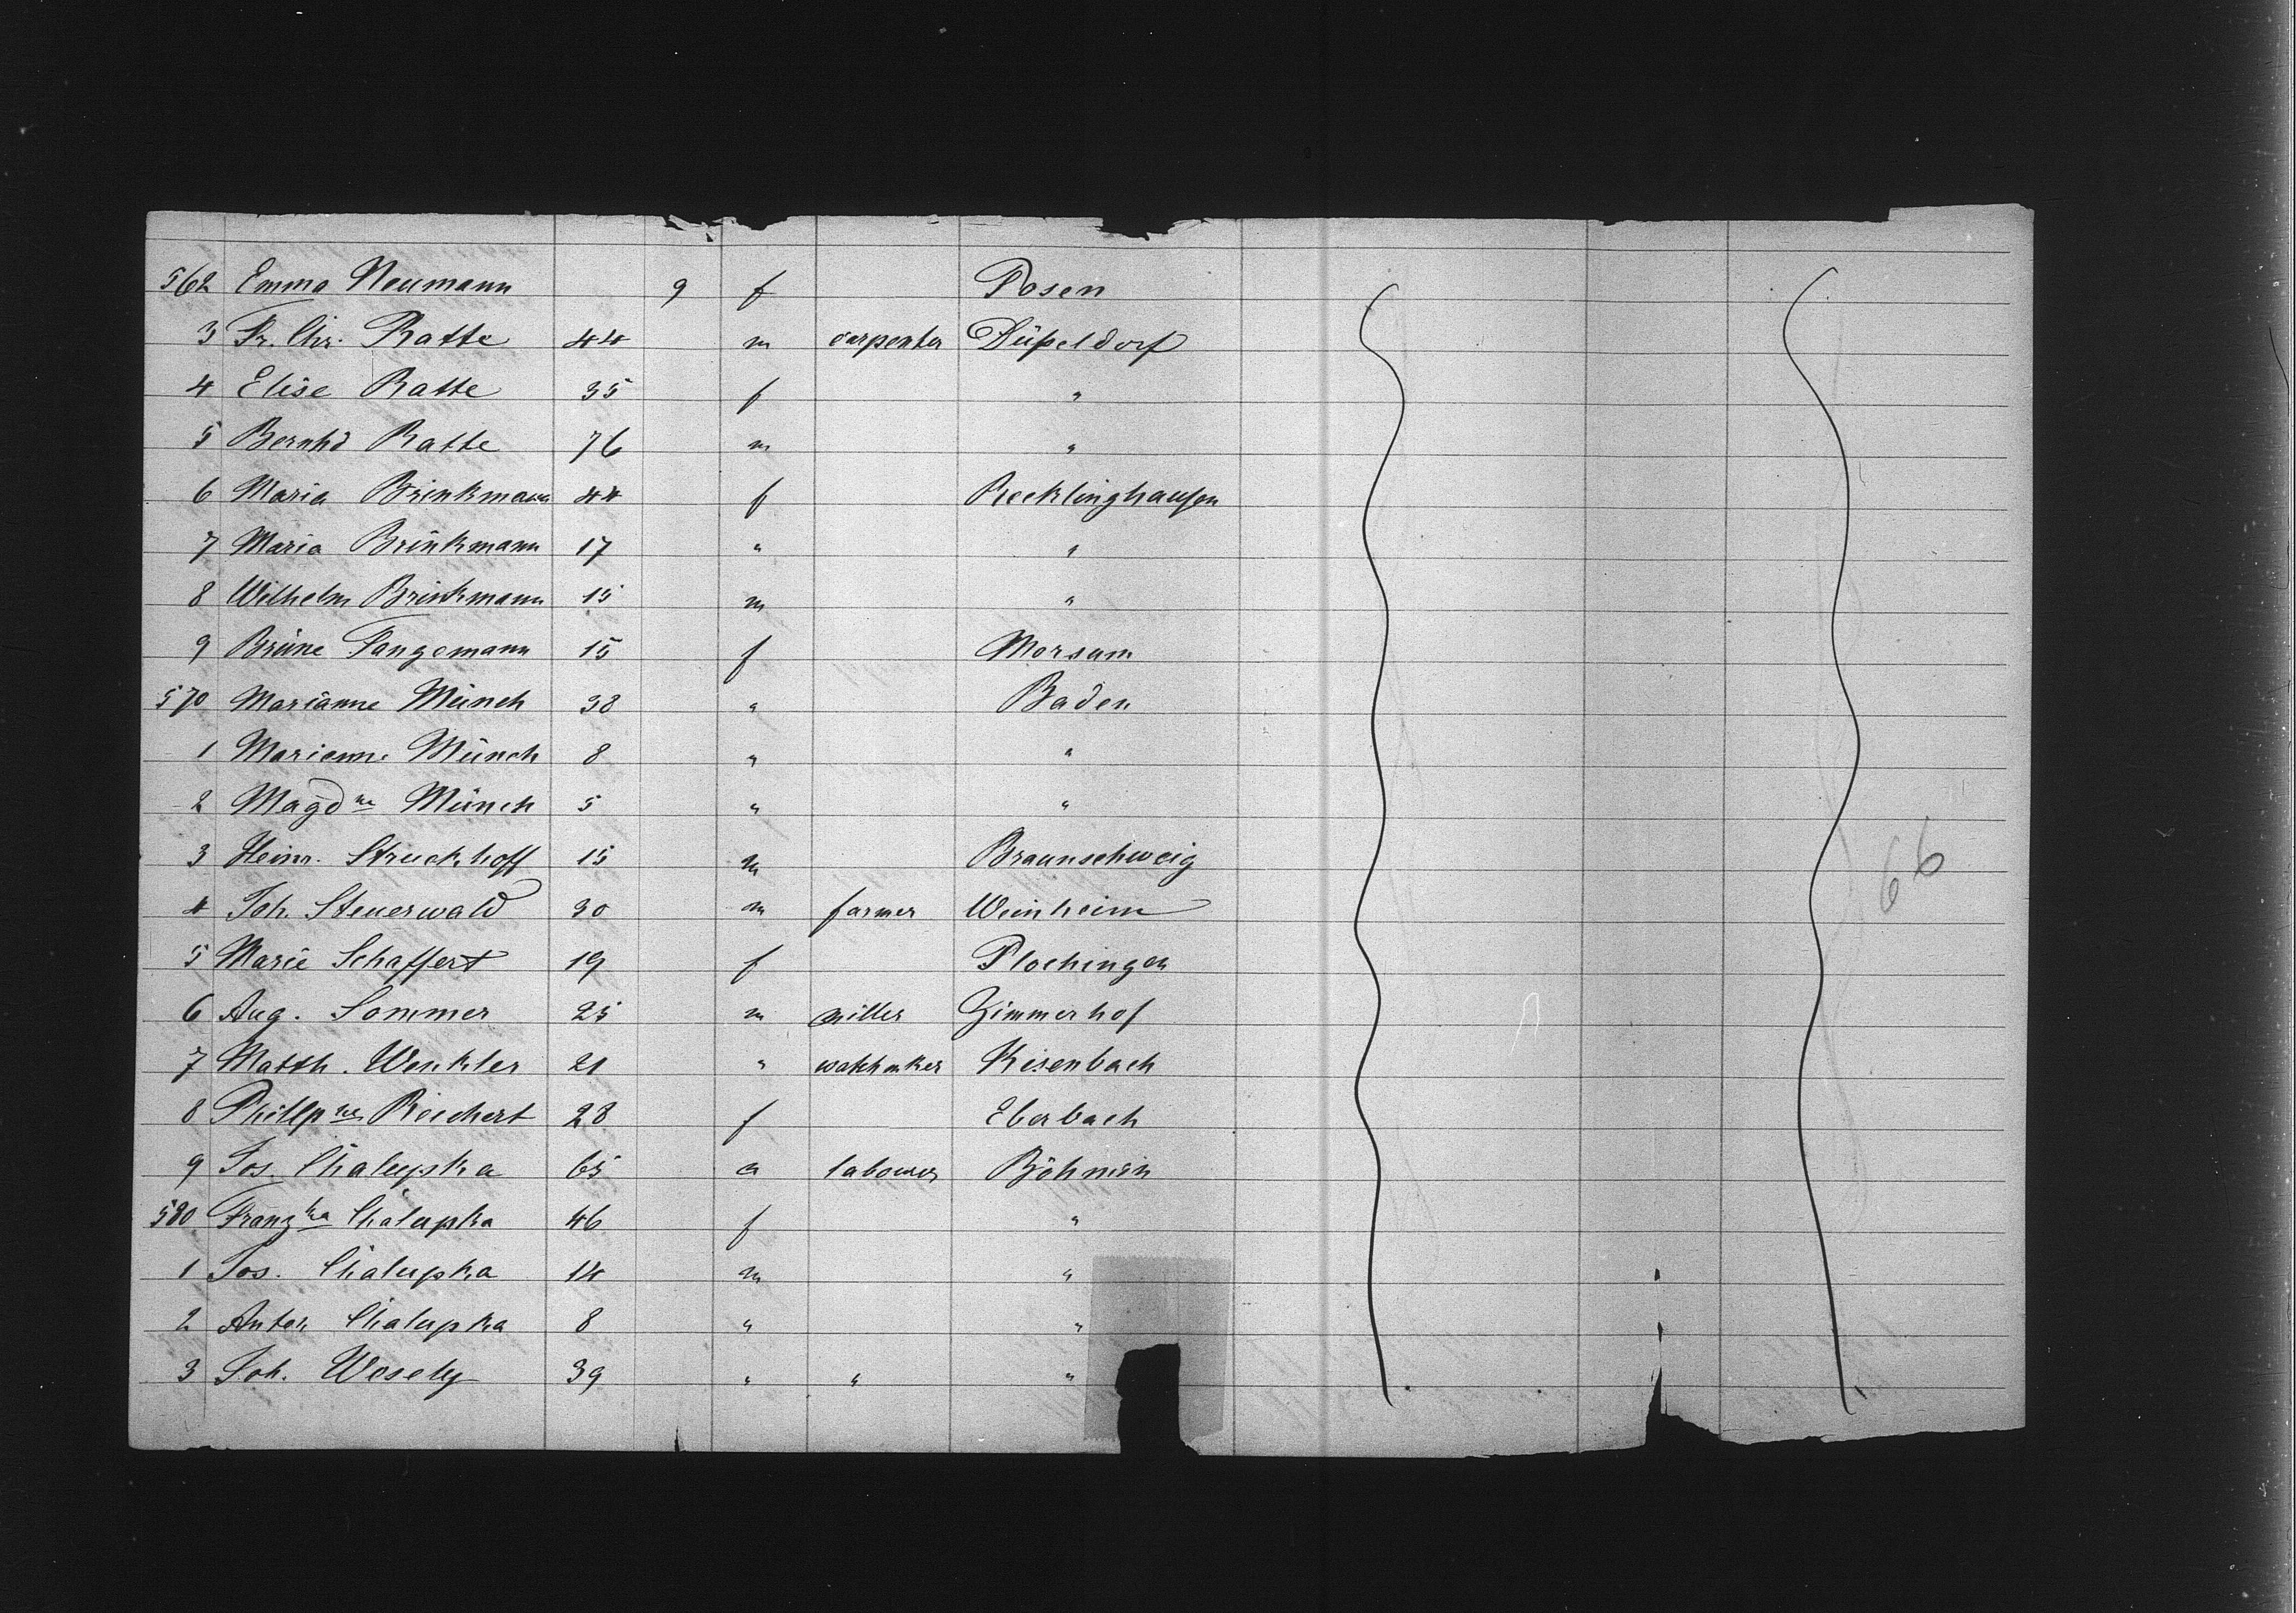 562 Emma Neumann 9 f Posen
3 Fr. Chr. Ratte 44 m carpenter Düßeldorf
4 Elise Ratte 35 f "
5 Bernhd Ratte 76 m "
6 Maria Brinkmann 44 f Recklinghausen
7 Maria Brinkmann 17 " "
8 Wilhelm Brinkmann 15 m "
9 Brüne Fangemann 15 f Morsum
570 Marianne Münch 38 " Baden
1 Marianne Münch 8 " "
2 Magdne Münch 5 " "
3 Heinr. Struckhoff 15 m Braunschweig
4 Joh. Steuerwald 30 m farmer Weinheim
5 Marie Schaffert 19 f Plochingen
6 Aug. Sommer 25 m miller Zimmerhof
7 Matth. Wenkler 21 " watchmker Kisenbach
8 Phillpne Reichert 28 f Eberbach
9 Jos. Chalupka 65 m labourer Böhmen
580 Franzka Chalupka 46 f "
1 Jos. Chalupka 14 m "
2 Anton Chalupka 8 " "
3 Joh. Wesely 39 " " "
66